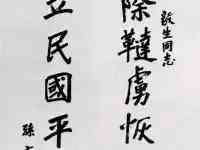 毅生同志
除韃虜恢
立民國平
孫